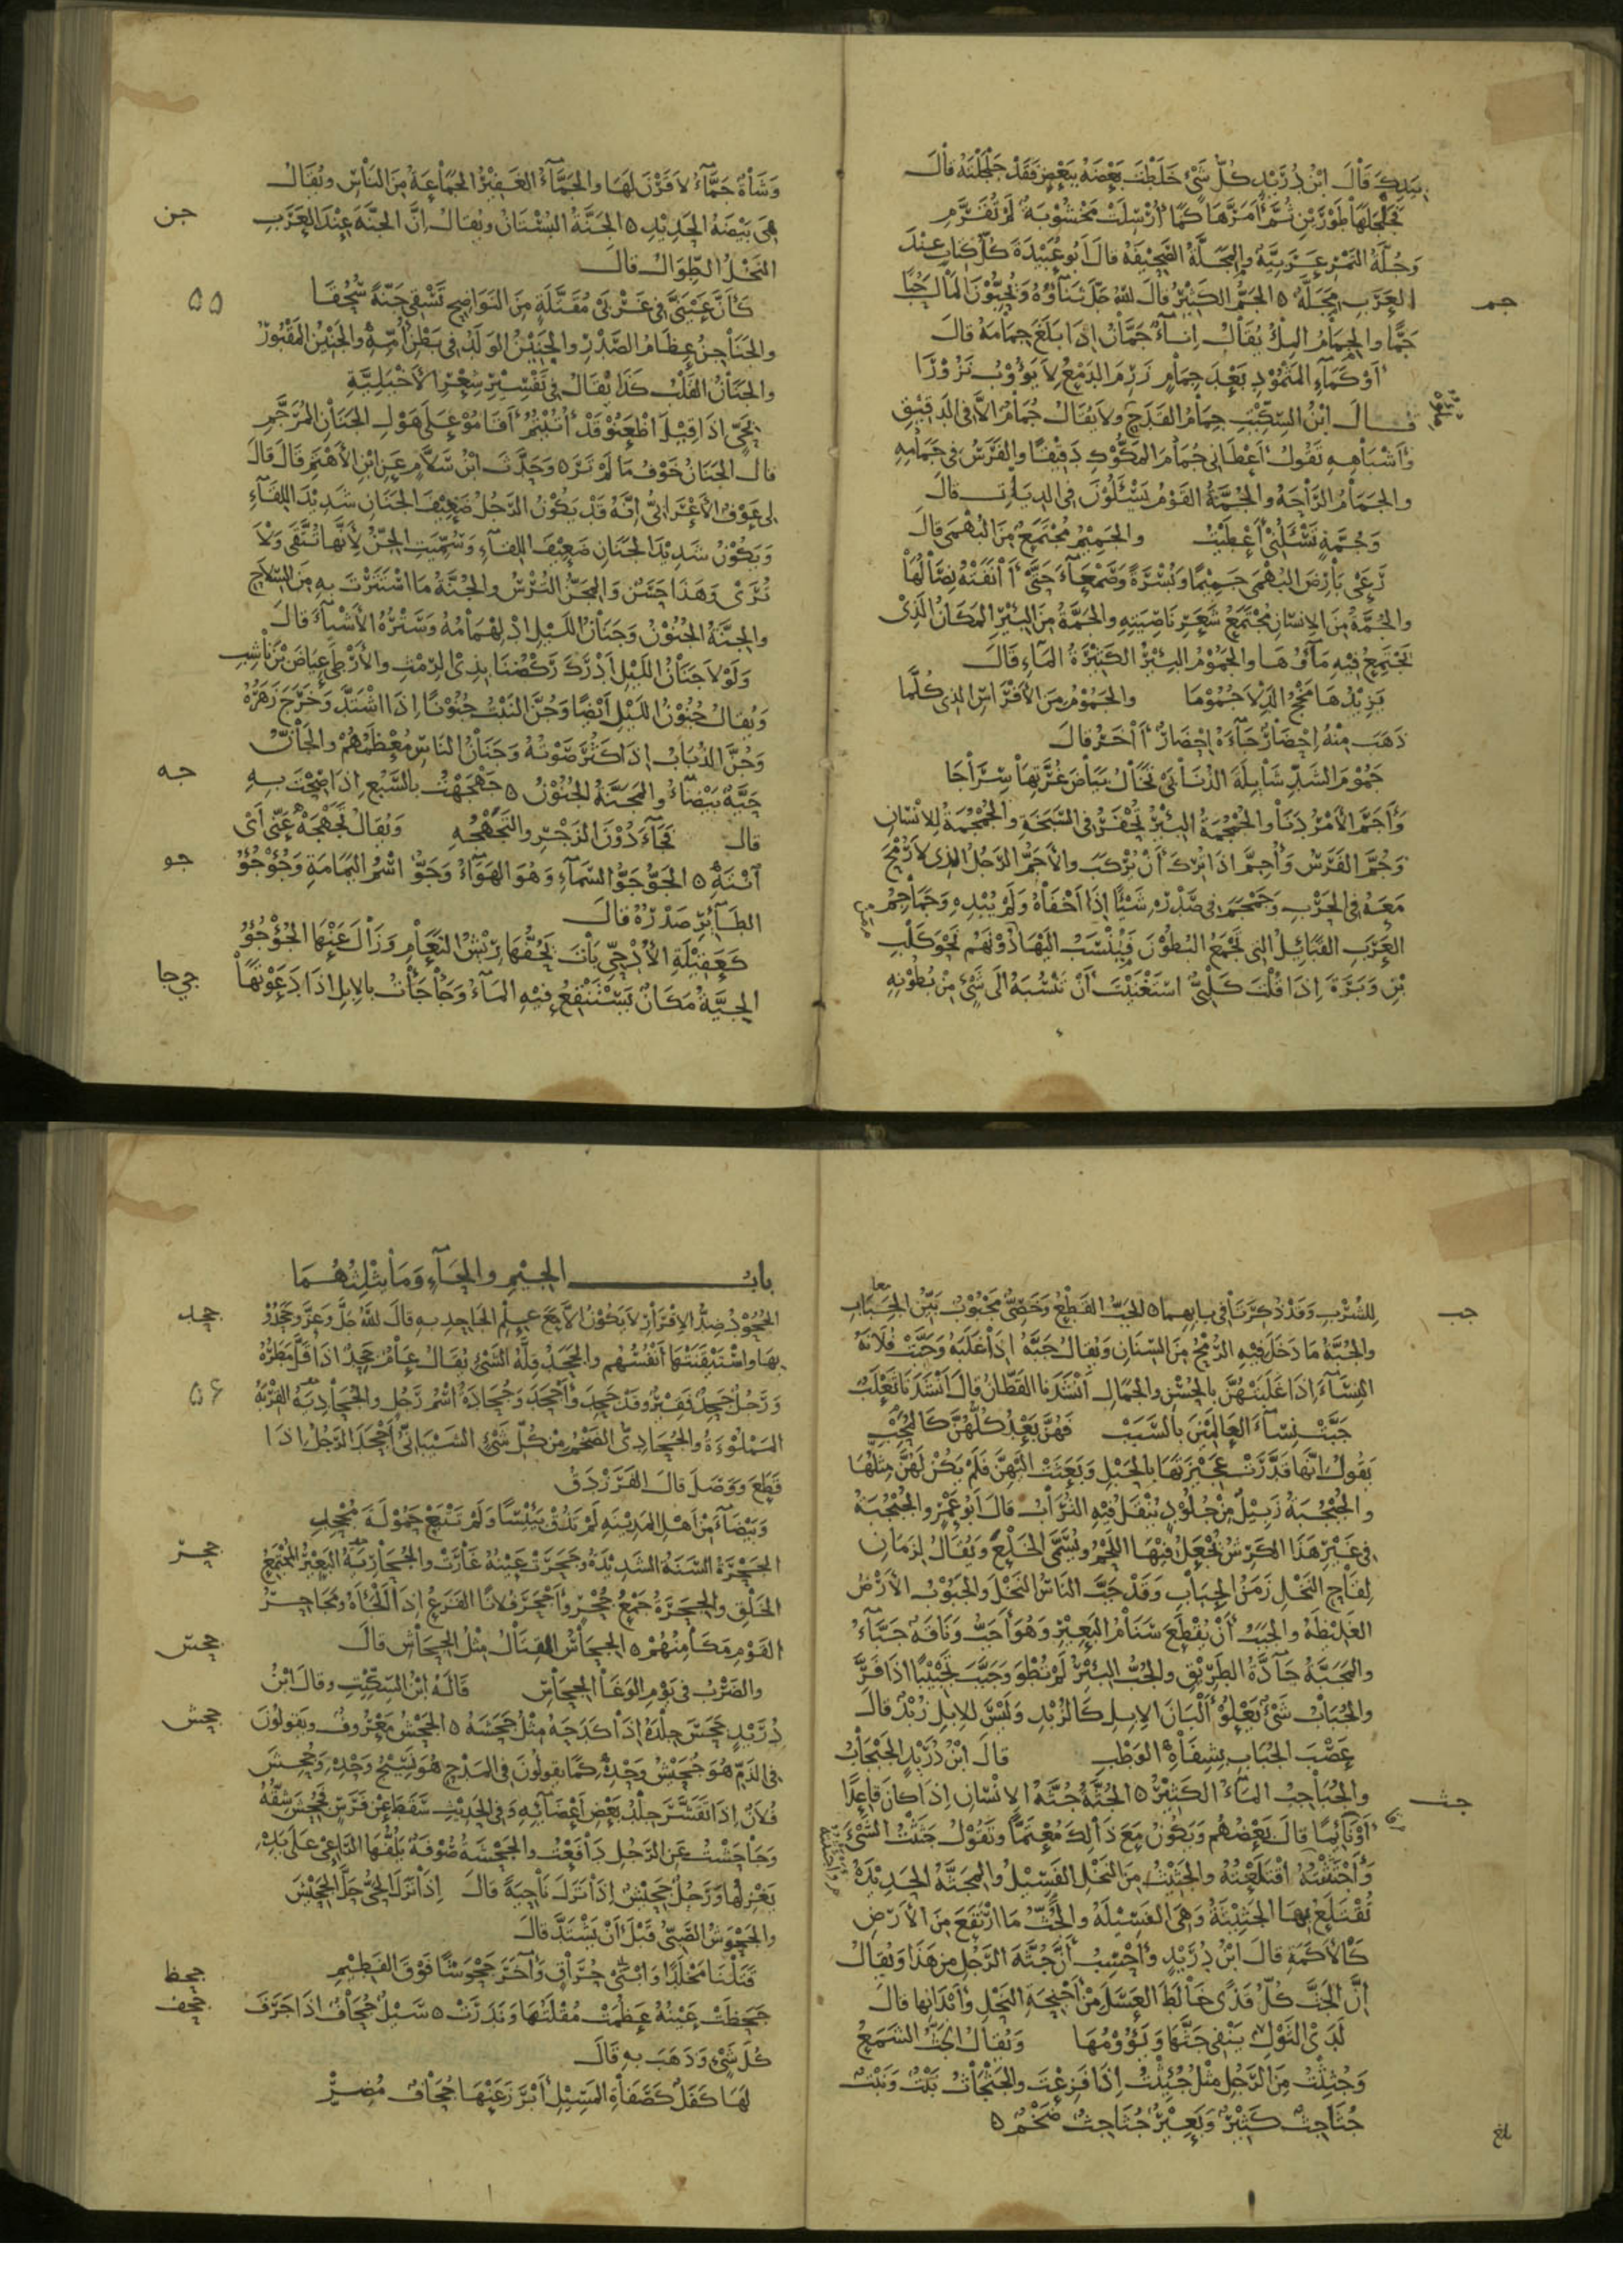 بيدك قال ابن دريد كل شيء خلطت بعضه ببعض فقد جلجلته قال
فجلجلها طورين ثم أمرها كما أرسلت مخشوبة لم تقرم
وجلة التمر عربية والمجلة الصحيفة قال أبو عبيدة كل كتاب عند
جم
العرب مجلة ه الجم الكثير قال الله جل ثناؤه وتحبون المال حبا
جما والجمام الملء يقال إناء جمان إذا بلغ جمامه قال
أو كماء المثمود بعد جمام زرم الدمع لا يؤوب نزورا
قال ابن السكيت جمام القدح ولا يقال جمام إلا في الدقيق
وأشباهه تقول أعطاني جمام المكوك دقيقا والفرس في جمامه
والجمام الراحة والجمة القوم يسئلون في الديات قال
وجمة تسئلني أعطيت والجميم مجتمع من البهمى قال
رعى بارض البهمى جميما وبسرة وصمعاء حتى آنفته نصالها
والجمة من الإنسان مجتمع شعر ناصيته والجمة من البئر المكان الذي
يجتمع فيه ماؤها والجموم البئر الكثيرة الماء قال
يزيدها مخج الدلا جموما والجموم من الأفراس الذي كلما
ذهب منه إحضار جاءه إحضار آخر قال
جموم الشد شائلة الذنابى تخال بياض غرتها سراجا
وأجم الأمر دنا والجمجمة البئر تحفر في السبخة والجمجمة للإنسان
وجم الفرس وأجم إذا ترك أن يركب والأجم الرجل الذي لا رمح
معه في الحرب وجمجم في صدره شيئا إذا أخفاه ولم يبده وجماجم
العرب القبائل التي تجمع البطون فينسب إليها دونهم نحو كلب
بن وبرة إذا قلت كلبي استغنيت أن تنسبه إلى شيء من بطونه
وشاة جماء لا قرن لها والجماء الغفير الجماعة من الناس ويقال
جن
هي بيضة الحديد ه الجنة البستان ويقال إن الجنة عند العرب
النخل الطوال قال
٥٥
كأن عيني في غربي مقتلة من النواضح تسقي جنة سحقا
والجناجن عظام الصدر والجنين الولد في بطن أمه والجنين المقبور
والجنان القلب كذا يقال في تفسير شعر الأخيلية
بحي إذا قيل اظعنوا قد أتيتم أقاموا على هول الجنان المرجم
قال الجنان خوف ما لم تر ه وحدث ابن سلام عن ابن الأهتم قال قال
لي عوف الأعرابي إنه قد يكون الرجل ضعيف الجنان شديد اللقاء
ويكون شديد الجنان ضعيف اللقاء وسميت الجن لأنها تتقى ولا
ترى وهذا حسن والمجن الترس والجنة ما استترت به من السلاح
والجنة الجنون وجنان الليل ادلهمامه وستره الأشياء قال
ولولا جنان الليل أدرك ركضنا بذي الرمث والأرطى عياض بن ناشب
ويقال جنون الليل أيضا وجن النبت جنونا إذا اشتد وخرج زهره
وجن الذباب إذا كثر صوته وجنان الناس معظمهم والجان
جه
حية بيضاء والمجنة الجنون ه جهجهت بالسبع إذا صحت به
قال فجاء دون الزجر والتجهجه ويقال تجهجه عني أي
جو
انته ه الجو جو السماء وهو الهواء وجو اسم اليمامة وجؤجؤ
الطائر صدره قال
كعقيلة الأدحي بات يحفها ريش النعام وزال عنها الجؤجؤ
جي جا
الجية مكان يستنقع فيه الماء وجأجأت بالإبل إذا دعوتها
جب
للشرب وقد ذكرتا في بابهما ه الجب القطع وخصي مجبوب بين الجباب
معا
والجبة ما دخل فيه الرمح من السنان ويقال جبه إذا غلبه وجبت فلانة
النساء إذا غلبتهن بالحسن والجمال أنشدنا القطان قال أنشدنا ثعلب
جبت نساء العالمين بالسبب فهن بعد كلهن كالمحب
يقول إنها قدرت عجيزتها بالحبل وبعثت إليهن فلم يكن لهن مثلها
والجبجبة زبيل من جلود ينقل فيه التراب قال أبو عمرو والجبجبة
في غير هذا الكرش يجعل فيها اللحم ويسمى الخلع ويقال لزمان
لقاح النخل زمن الجباب وقد جب الناس النخل والجبوب الأرض
الغليظة والجبب أن يقطع سنام البعير وهو أجب وناقة جباء
والمجبة جادة الطريق والجب البئر لم تطو وجبب تجبيبا إذا فر
والجباب شيء يعلو ألبان الإبل كالزبد وليس للإبل زبد قال
عصب الجباب بشفاه الوطب قال ابن دريد الجبجاب
جث
والجباجب الماء الكثير ه الجثة جثة الإنسان إذا كان قاعدا
أو نائما قال بعضهم ويكون مع ذلك معتما وتقول جثثت الشيء
واجتثثته اقتلعته والجثيث من النخل الفسيل والمجثة الحديدة
تقتلع بها الجثيثة وهي الفسيلة والجث ما ارتفع من الأرض
كالأكمة قال ابن دريد وأحسب أن جثة الرجل من هذا ويقال
إن الجث كل قذى خالط العسل من أجنحة النحل وأبدانها قال
لدى الثول ينفي جثها ويؤومها ويقال الجث الشمع
وجثثت من الرجل مثل جئثت إذا فزعت والجثجاث نبت ونبت
جثاجث كثير وبعير جثاجث ضخم ه
بلغ
باب الجيم والحاء وما يثلثهما
جحد
الجحود ضد الإقرار لا يكون إلا مع علم الجاحد به قال الله جل وعز وجحدوا
بها واستيقنتها أنفسهم والجحد قلة الشيء يقال عام جحد إذا قل مطره
٥٦
ورجل جحد فقير وقد جحد وأجحد وجحادة اسم رجل والجحادية القربة
المملوءة والجحادي الضخم من كل شيء الشيباني أجحد الرجل إذا
قطع ووصل قال الفرزدق
وبيضاء من أهل المدينة لم تذق بئيسا ولم تتبع حمولة مجحد
جحر
الجحرة السنة الشديدة وجحرت عينه غارت والجحارية البعير المجتمع
الخلق والجحرة جمع جحر وأجحر فلانا الفزع إذا ألجأه ومجاحر
جحس
القوم مكامنهم ه الجحاس القتال مثل الجحاش قال
والضرب في يوم الوغا الجحاس قاله ابن السكيت وقال ابن
جحش
دريد جحس جلده إذا كدحه مثل جحشه ه الجحش معروف ويقولون
في الذم هو جحيش وحده كما يقولون في المدح هو نسيج وحده وجحش
فلان إذا تقشر جلد بعض أعضائه وفي الحديث سقط عن فرس فجحش شقه
وجاحشت عن الرجل دافعت والجحشة صوفة يلفها الراعي على يده
يغزلها ورجل جحيش إذا نزل ناحية قال إذا نزل الحي حل الجحيش
والجحوش الصبي قبل أن يشتد قال
قتلنا مخلدا وابني حراق وآخر جحوشا فوق الفطيم
جحظ
جحف
جحظت عينه عظمت مقلتها وندرت ه سيل جحاف إذا جرف
كل شيء وذهب به قال
لها كفل كصفاة المسيل أبرز عنها جحاف مضر